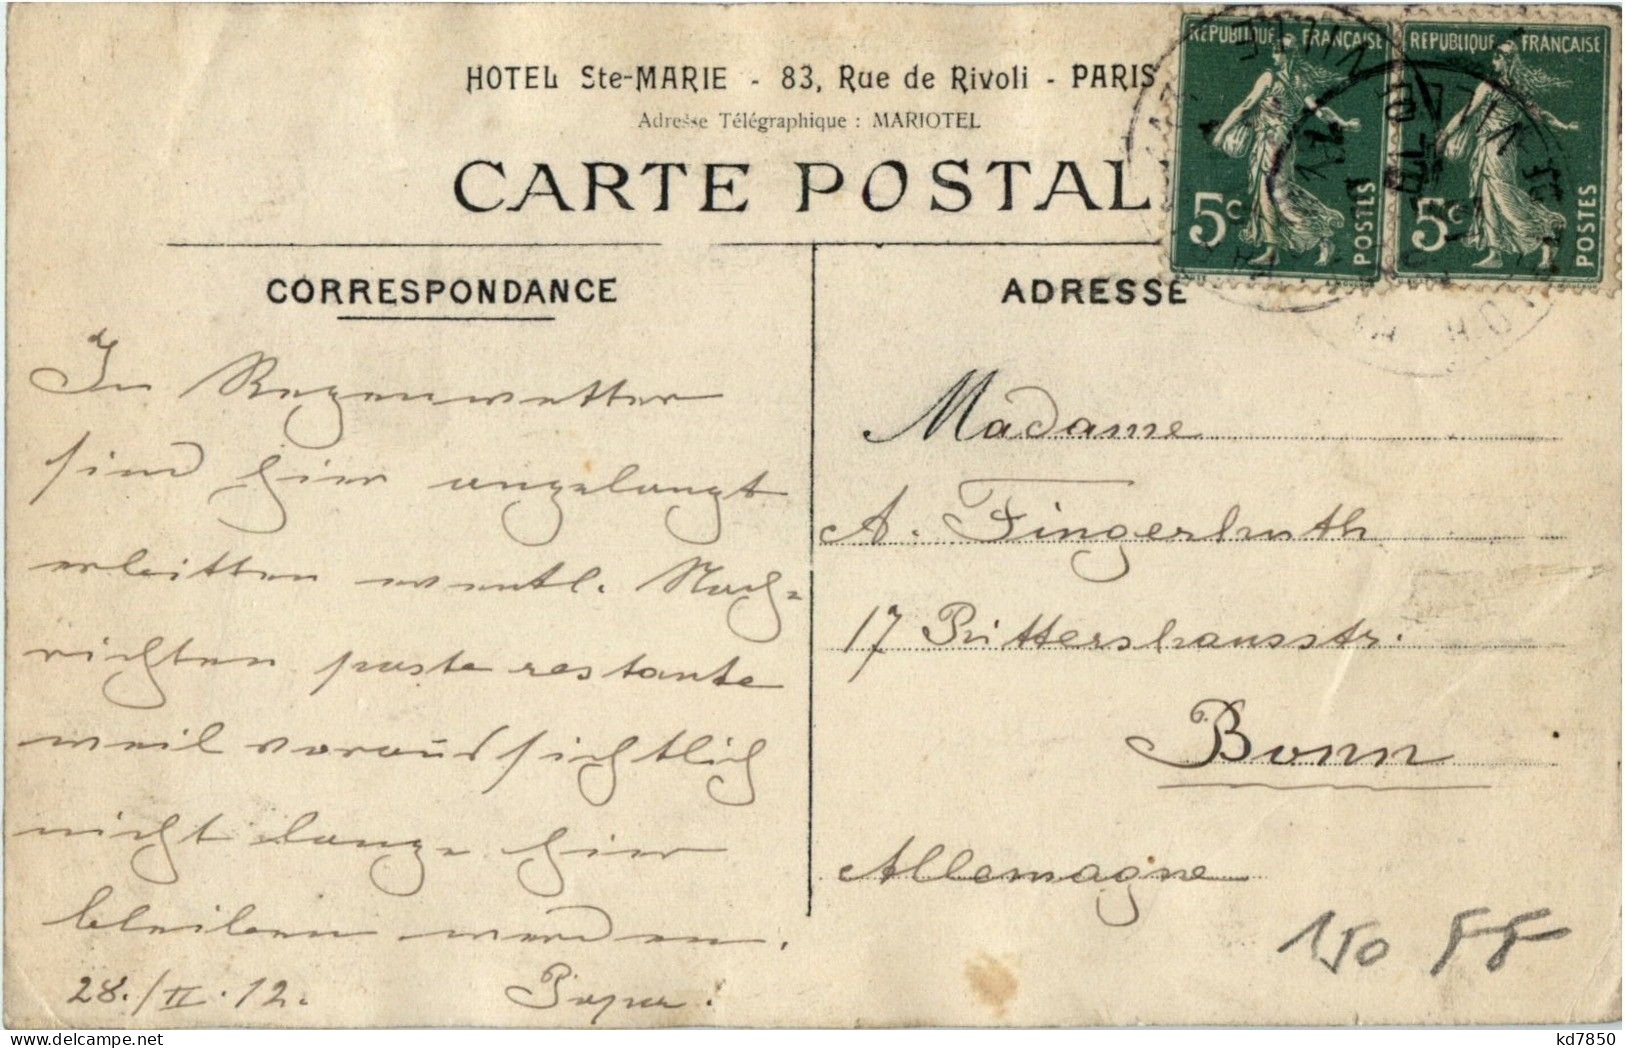 HOTEL Ste-MARIE - 83, Rue de Rivoli - PARIS
Adresse Télégraphique : MARIOTEL
CARTE POSTALE
REPUBLIQUE FRANÇAISE
5c POSTES
REPUBLIQUE FRANÇAISE
5c POSTES
CORRESPONDANCE
In Regenwetter
sind hier angelangt
erbitten eventl. Nach-
richten poste restante
weil voraussichtlich
nicht lange hier
bleiben werden.
28./II.12. Papa.
ADRESSE
Madame
A. Fingerhuth
17 Rittershausstr.
Bonn
Allemagne
150 FF
kd7850